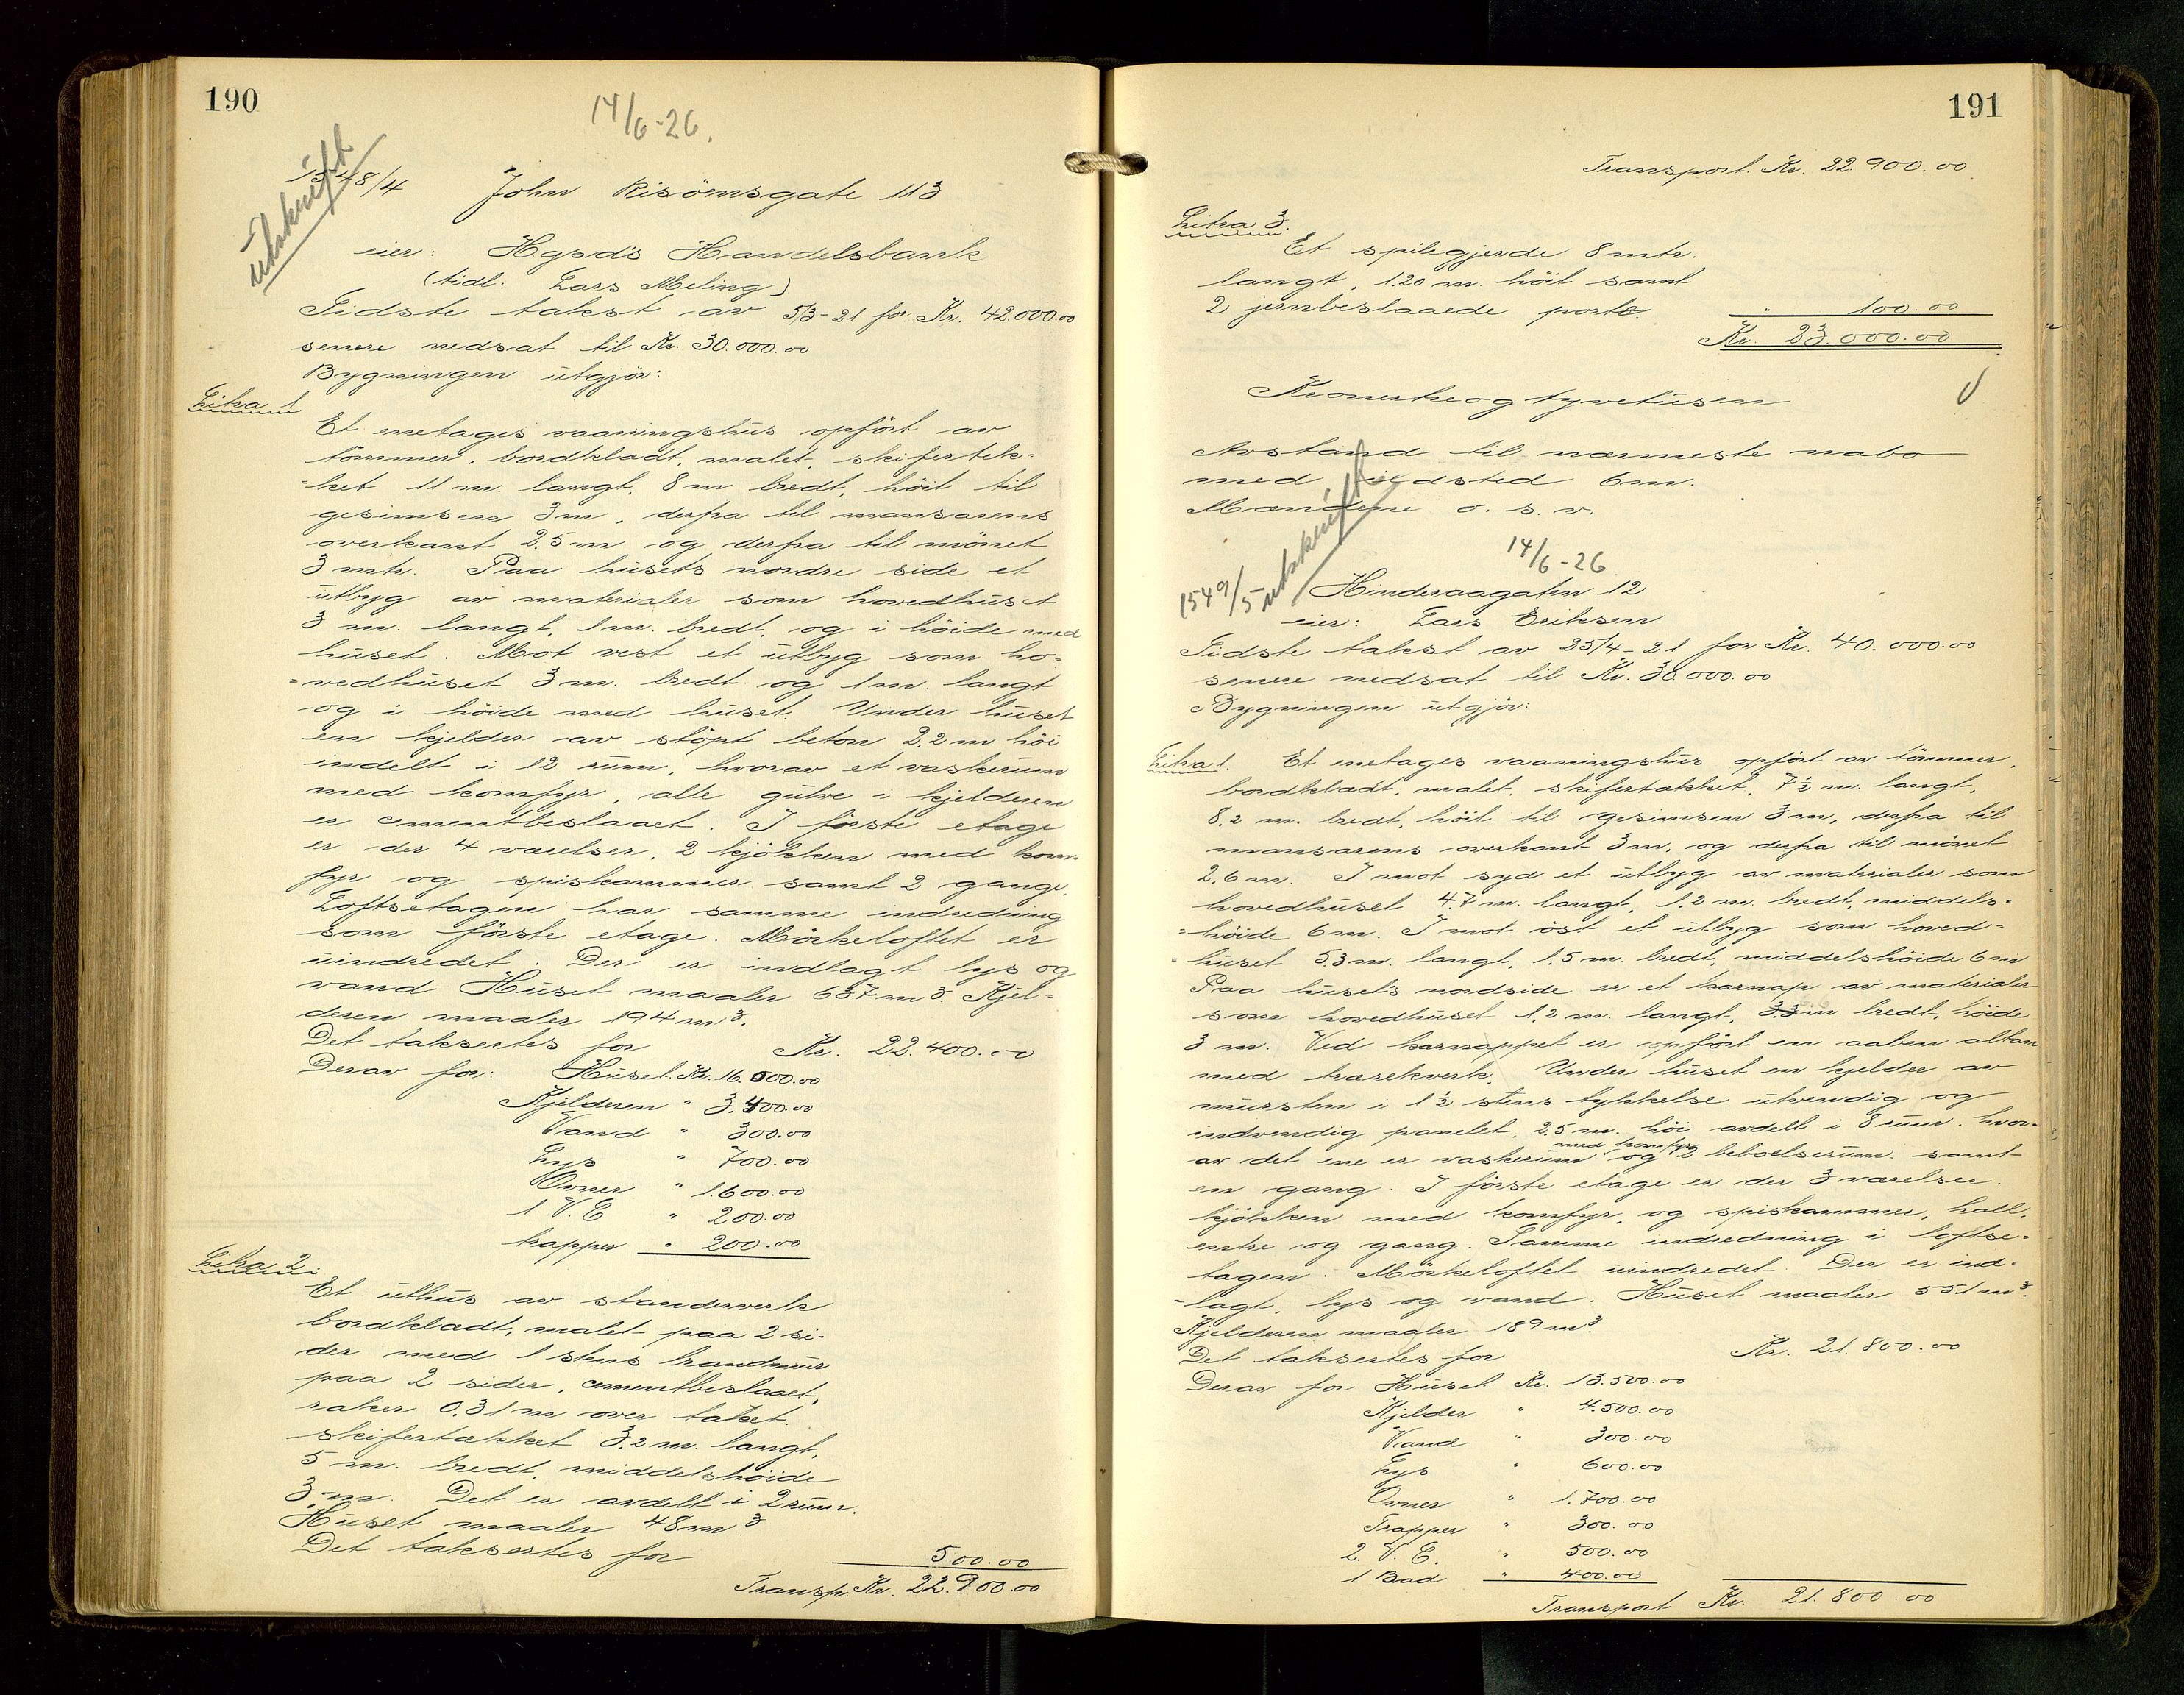 190
14/6-26.
1548/4 John Risöensgate 113
utskrift
eier: Hgsd's Handelsbank
(tidl: Lars Meling)
Sidste takst av 5/3-21 for Kr. 42.000.00
senere nedsat til Kr. 30.000.00
Bygningen utgjör:
Litra 1
Et enetages vaaningshus opfört av
tömmer, bordkladt, malet, skifertek-
ket 11 m. langt, 8 m bredt, höit til
gesimsen 3 m, derfra til mansarens
overkant 2.5 m og derfra til mönet
3 mtr. Paa husets nordre side et
utbyg av materialer som hovedhuset
3 m. langt, 1 m. bredt, og i höide med
huset. Mot vest et utbyg som ho-
=vedhuset 3 m. bredt og 1 m. langt
og i höide med huset. Under huset
en kjelder av stöpt beton 2.2 m höi
indelt i 12 rum, hvorav et vaskerum
med komfyr, alle gulve i kjelderen
er cementbeslaaet. I förste etage
er der 4 værelser, 2 kjökken med kom-
fyr og spiskammer samt 2 gange.
Loftsetagen har samme indredning
som förste etage. Mörkeloftet er
uindredet. Der er indlagt lys og
vand Huset maaler 637 m3. Kjel-
deren maaler 194 m3.
Det takseres for Kr. 22.400.00
Derav for: Huset Kr. 16.000.00
Kjelderen " 3.400.00
Vand " 300.00
Lys " 700.00
Ovner " 1.600.00
1 V.C " 200.00
trapper " 200.00
Litra 2.
Et uthus av standerverk
bordkladt, malet paa 2 si-
der med 1 stens brandmur
paa 2 sider, cementbeslaaet,
raker 0.31 m over taket.
skifertækket 3.2 m. langt,
5 m. bredt, middelshöide
3 m. Det er avdelt i 2 rum.
Huset maaler 48 m3
Det takseres for 500.00
Transp. Kr. 22.900.00
191
Transport. Kr. 22.900.00
Litra 3.
Et spilegjerde 8 mtr.
langt, 1.20 m. höit samt
2 jernbeslaaede porte. " 100.00
Kr. 23.000.00
Kronertreogtyvetusen
Avstand til nærmeste nabo
med ildsted 6 m.
Mændene o. s. v.
14/6-26
1549/5 utskrift
Hinderaagaten 12
eier: Lars Eriksen
Sidste takst av 25/4-21 for Kr. 40.000.00
senere nedsat til Kr. 30.000.00
Bygningen utgjör:
Litra 1. Et enetages vaaningshus opfört av tömmer,
bordkladt, malet, skifertækket, 7½ m. langt,
8.2 m. bredt, höit til gesimsen 3 m, derfra til
mansarens overkant 3 m, og derfra til mönet
2.6 m. I mot syd et utbyg av materialer som
hovedhuset 4.7 m. langt, 1.2 m. bredt, middels-
=höide 6 m. I mot öst et utbyg som hoved=
=huset 5.3 m. langt, 1.5 m. bredt, middelshöide 6 m
Paa huset's nordside er et karnap av materialer
som hovedhuset 1.2 m. langt, 3.3 m. bredt, höide
3 m. Ved karnappet er opfört en aaben altan
med trærekverk. Under huset en kjelder av
mursten i 1½ stens tykkelse utvendig og
indvendig panelet, 2.5 m. höi avdelt i 8 rum, hvor-
av det ene er vaskerum med komfyr og 2 beboelsesrum samt
en gang. I förste etage er der 3 værelser,
kjökken med komfyr, og spiskammer, hall,
entre og gang. Samme indredning i loftse-
tagen. Mörkeloftet uindredet. Der er ind-
=lagt, lys og vand. Huset maaler 551 m3.
Kjelderen maaler 189 m3.
Det takseres for Kr. 21.800.00
Derav for Huset Kr. 13.500.00
Kjelder " 4.500.00
Vand " 300.00
Lys " 600.00
Ovner " 1.700.00
Trapper " 300.00
2. V. C. " 500.00
1 Bad " 400.00
Transport Kr. 21.800.00